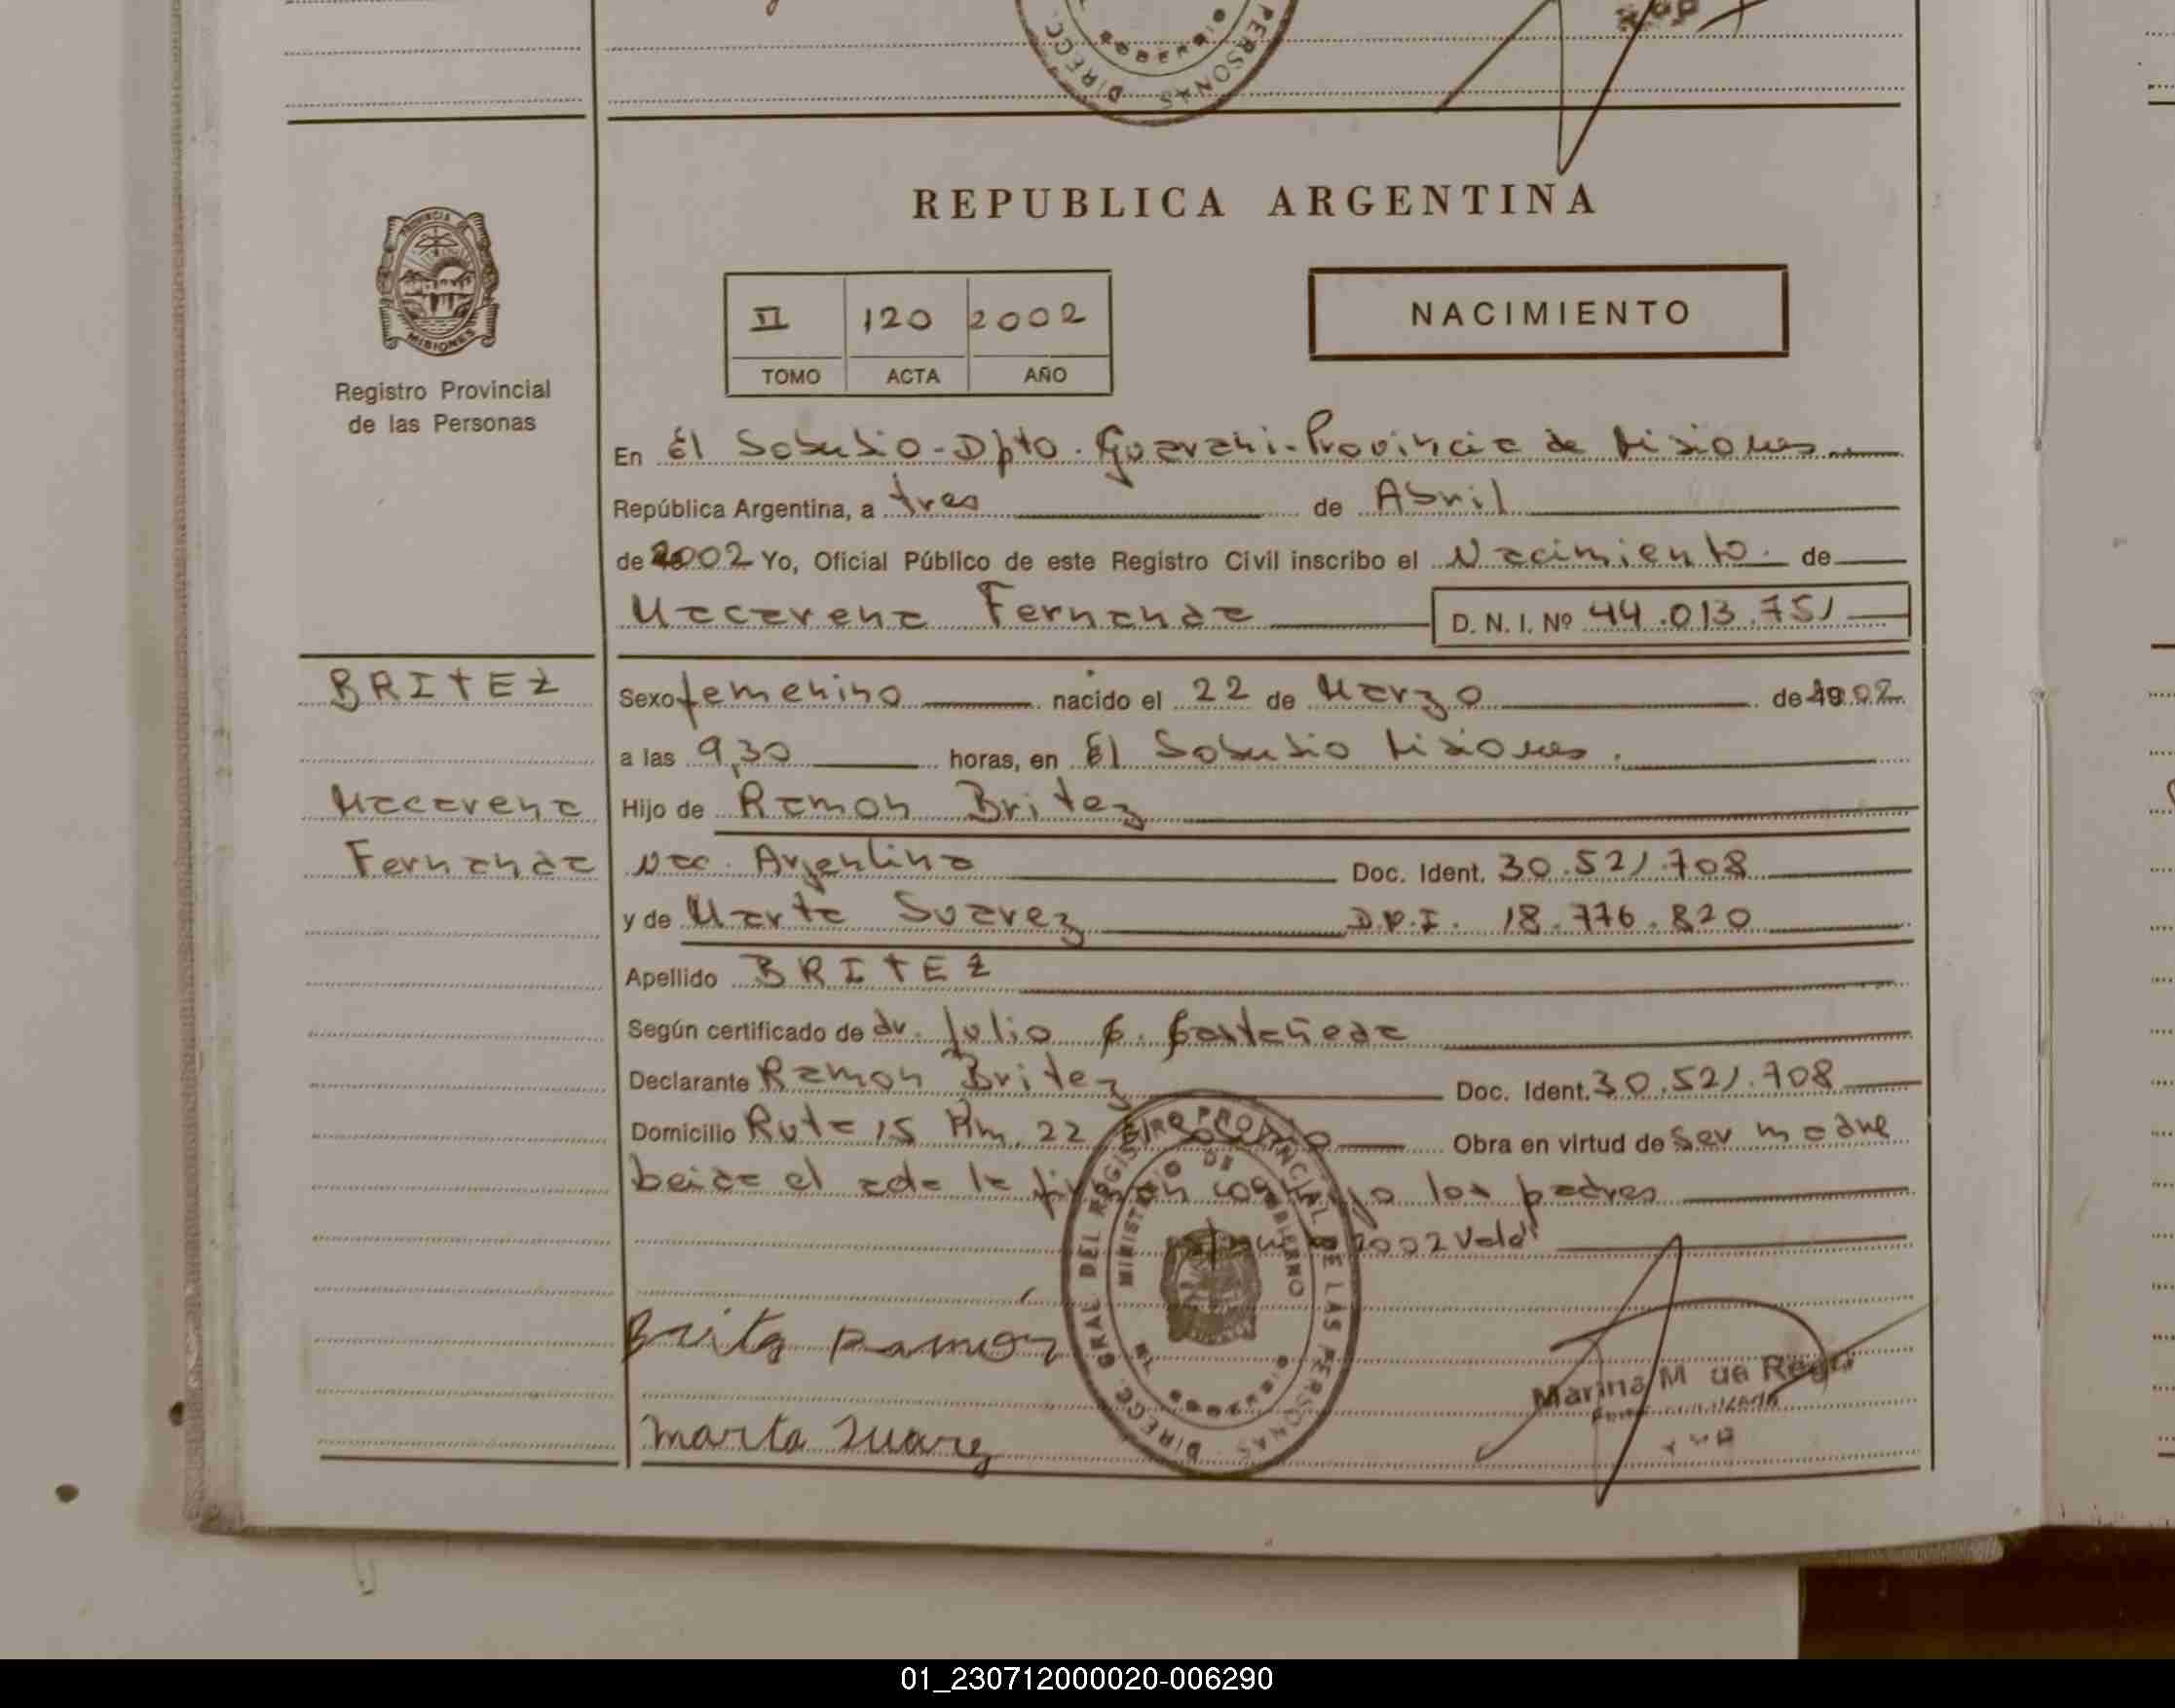 DIRECC. PERSONAS
REPUBLICA ARGENTINA
PROVINCIA DE
MISIONES
Registro Provincial
de las Personas
II 120 2002
TOMO ACTA AÑO
NACIMIENTO
En El Soberbio - Dpto. Guarani - Provincia de Misiones
República Argentina, a tres de Abril
de 2002 Yo, Oficial Público de este Registro Civil inscribo el Nacimiento de
Macarena Fernanda D. N. I. Nº 44.013.751
BRITEZ
Macarena
Fernanda
Sexo femenino nacido el 22 de Marzo de 2002
a las 9,30 horas, en El Soberbio Misiones.
Hijo de Ramon Britez
Nac. Argentina Doc. Ident. 30.521.708
y de Marta Suarez D.N.I. 18.776.820
Apellido BRITEZ
Según certificado de dr. Julio C. Castañeda
Declarante Ramon Britez Doc. Ident. 30.521.708
Domicilio Ruta 15 Km. 22 Obra en virtud de ser
leida el acta la firman conmigo los padres
2002 Vale
DIRECC. GRAL. DEL REGISTRO PROVINCIAL DE LAS PERSONAS
MINISTERIO DE GOBIERNO
Britez Ramón
Marta Suarez
Marina M de
01_230712000020-006290